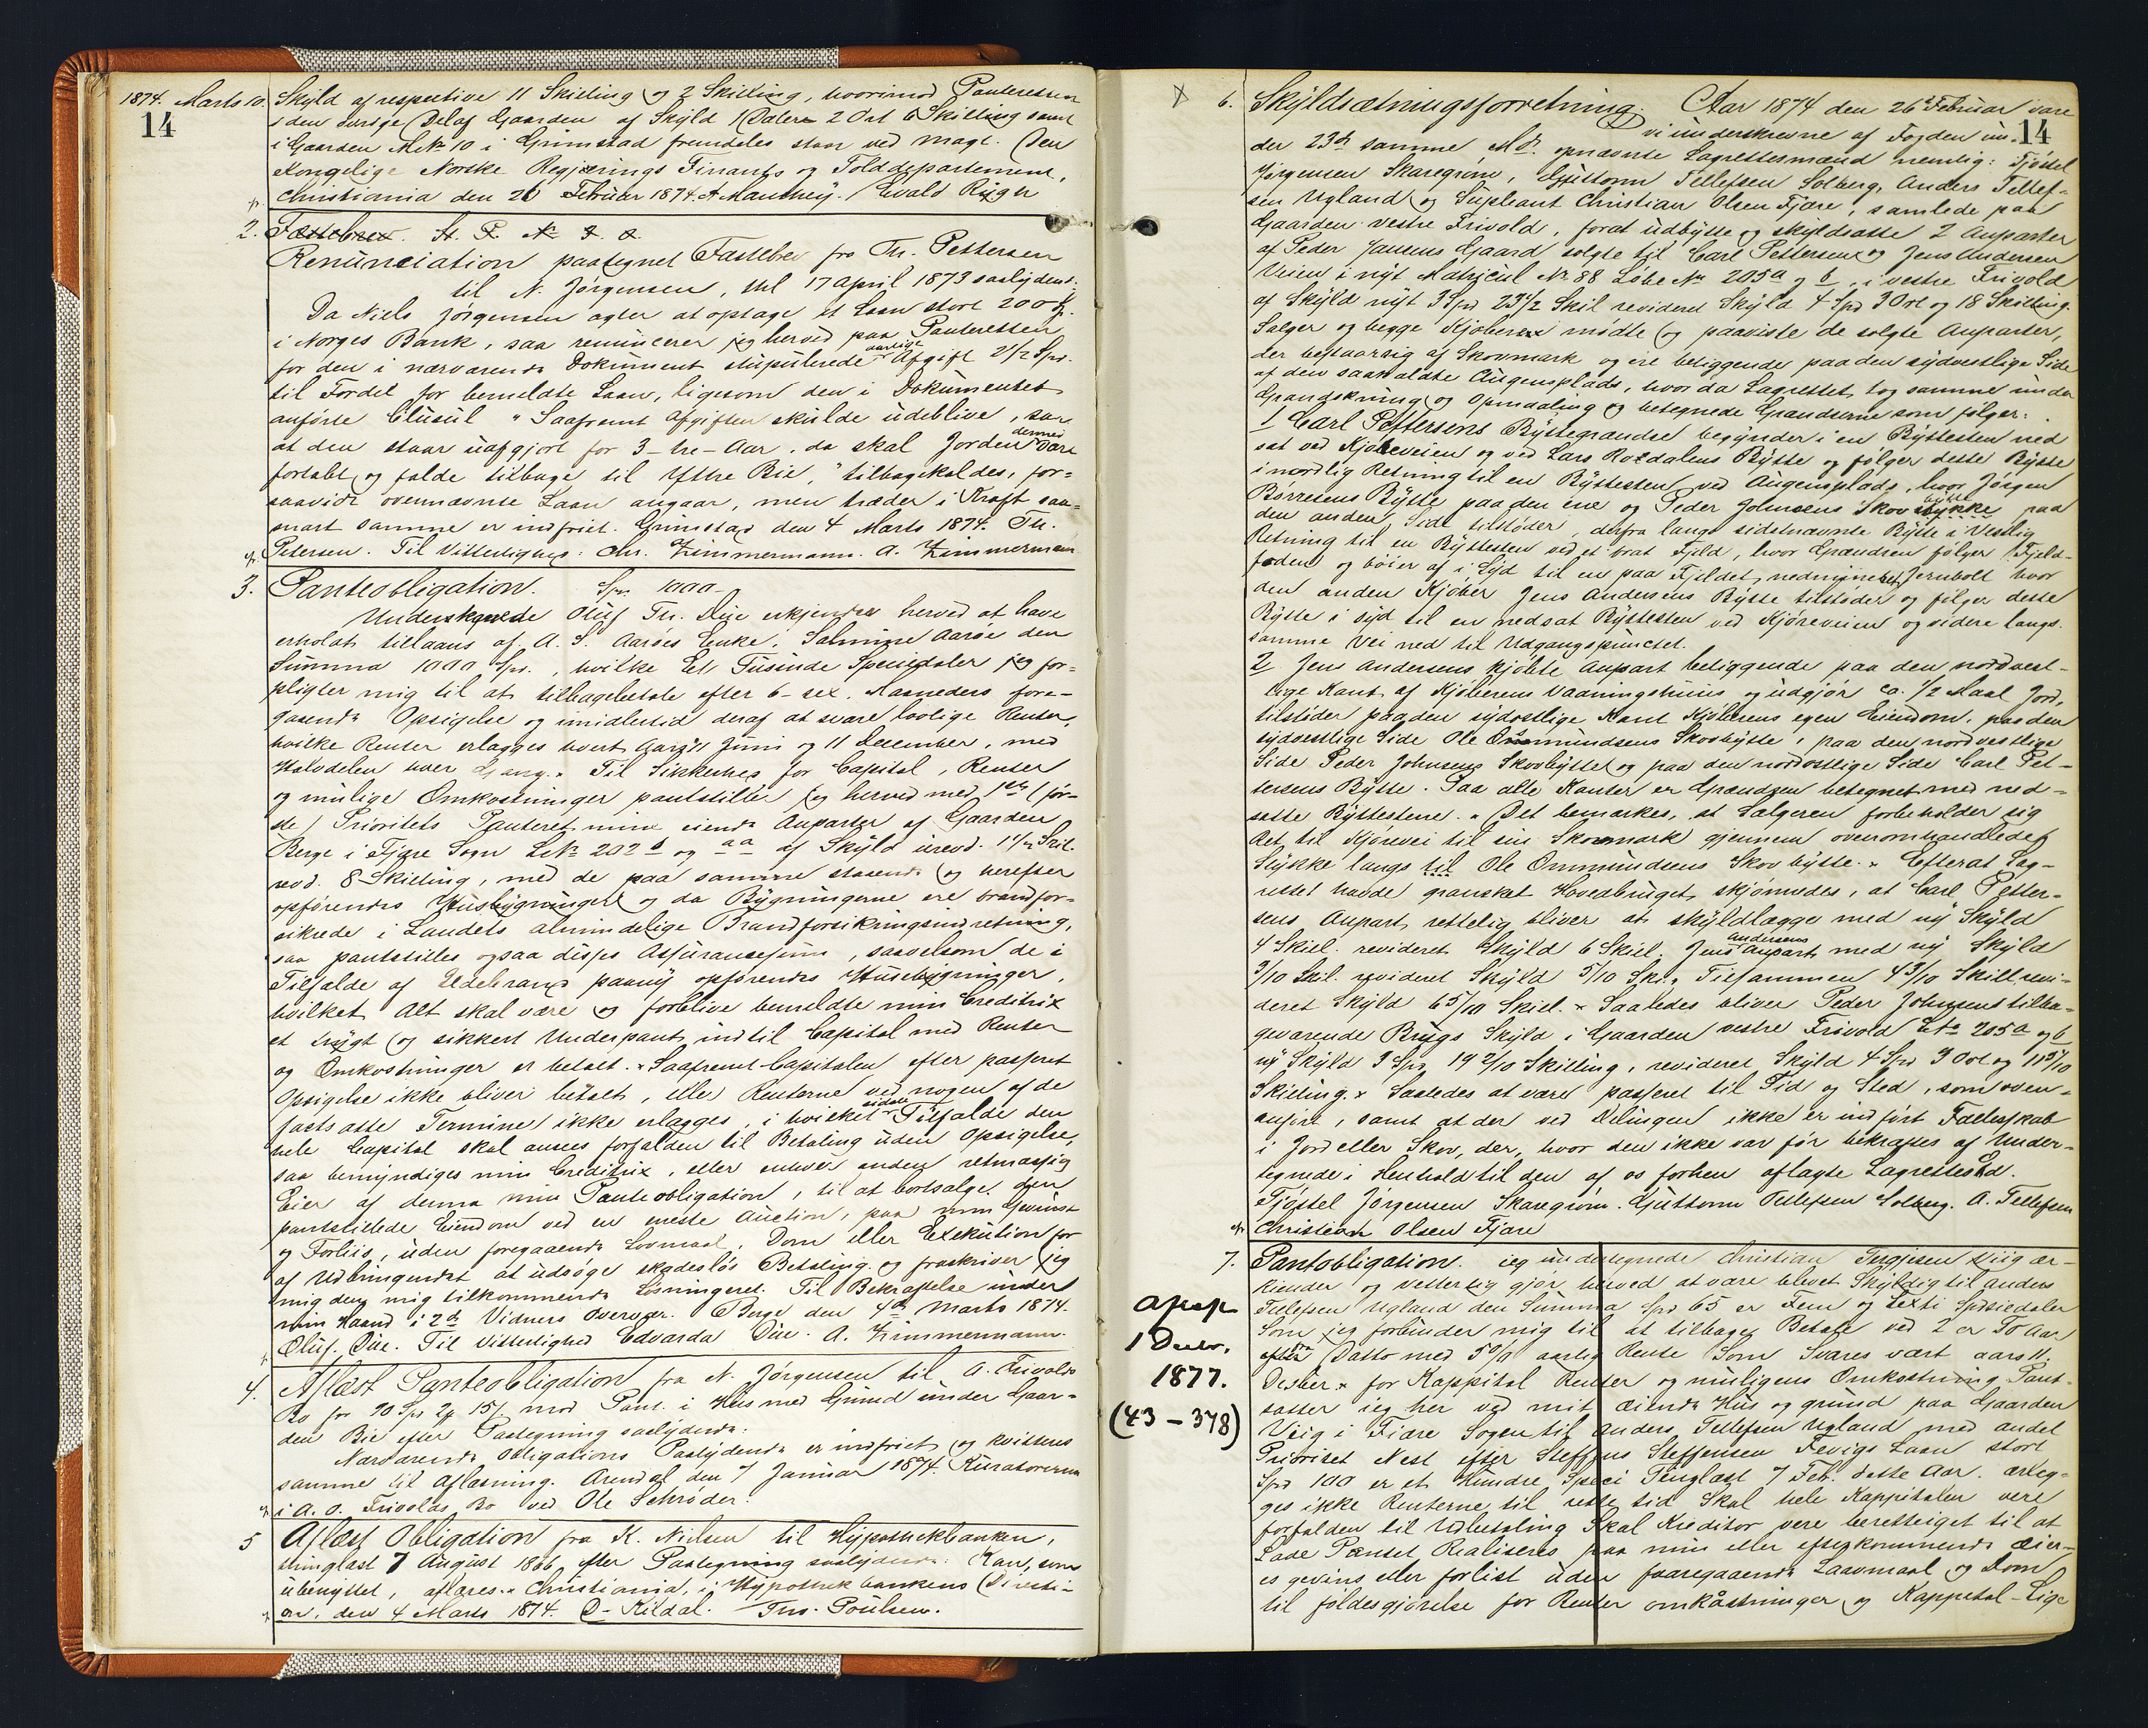 1874. Marts 10. Skyld af respective 11 Skilling og 2 Skilling, hvorimod Panteretten
14
i den øvrige Del af Gaarden af Skyld 1 Daler 2 Ort 6 Skilling samt
i Gaarden M.No 10 i Grimstad fremdeles staar ved Magt. Den
Kongelige Norske Regjerings Finants og Tolddepartement,
Christiania den 26 Februar 1874. A Manthey. / Evald Rygh
2. Fæstebrev.
Renunciation paategnet Fæstebrev fra Th. Pettersen
til N. Jørgensen, thl 17 April 1873 saalydende:
Da Niels Jørgensen agter at optage et Laan stort 200
i Norges Bank, saa renuncerer jeg herved paa Panteretten
for den i nærværende Dokument stipulerede aarlige Afgift 2 1/2 Spd.
til Fordel for bemeldte Laan, ligesom den i Dokumentet
anførte Clusul "Saafremt Afgiften skulde udeblive, saa
at den staar uafgjort for 3-tre-Aar, da skal Jorden dermed være
fortabt og falde tilbage til Yttre Bie," tilbagekaldes, for-
saavidt ovennævnte Laan angaar, men træder i Kraft saa-
snart samme er indfriet. Grimstad den 4 Marts 1874. Th.
Petersen. Til Vitterlighed: Chr. Zimmermann. A. Zimmermann
3. Panteobligation. Spd. 1000-
Underskrevne Oluf Th. Due erkjender herved at have
erholdt tillaans af A. S. Aarøes Enke, Salmine Aarøe den
Summa 1000 Spd., hvilke Et Tusinde Speciedaler jeg for-
pligter mig til at tilbagebetale efter 6-sex. Maaneders fore-
gaaende Opsigelse og imidlertid deraf at svare lovlige Renter,
hvilke Renter erlægges hvert Aars 11 Juni og 11 December, med
Halvdelen hver Gang. Til Sikkerhed for Capital, Renter
og mulige Omkostninger pantstiller jeg herved med 1ste (før-
ste) Prioritets Panteret mine eiende Anparter af Gaarden
Berge i Fjære Sogn LNo 202 b og aa af Skyld urevd. 1 1/2 Skil.
revd. 8 Skilling, med de paa samme staaende og herefter
opførendes Husbygninger og da Bygningerne ere brandfor-
sikrede i Landets almindelige Brandforsikringsindretning,
saa pantstilles ogsaa disses Assurancesum, saavelsom de i
Tilfælde af Ildebrand paany opførendes Husebygninger,
hvilket Alt skal være og forblive bemeldte min Creditrix
et trygt og sikkert Underpant indtil Capital med Renter
og Omkostninger er betalt. Saafremt Capitalen efter passeret
Opsigelse ikke bliver betalt, eller Renterne ved nogen af de
fastsatte Terminer ikke erlægges, i hvilket sidste Tilfælde den
hele Capital skal ansees forfalden til Betaling uden Opsigelse,
saa bemyndiges min Creditrix, eller enhver anden retmæssig
Eier af denne min Panteobligation, til at bortsælge den
pantstillede Eiendom ved en eneste Auction, paa min Gevinst
og Forliis, uden foregaaende Lovmaal, Dom eller Exekution for
af Udbringendet at udsøge skadesløs Betaling og fraskriver jeg
mig den mig tilkommende Løsningsret. Til Bekræftelse under
min Haand i 2de Vidners Overvær. Berge den 4de Marts 1874.
Oluf. Due. Til Vitterlighed Edvarda Due. A. Zimmermann.
4. Aflæst Panteobligation fra N. Jørgensen til A. Frivolds
Bo for 90 Spd 2 15 mod Pant i Hus med Grund under Gaar-
den Bie efter Paategning saalydende:
Nærværende Obligations Paalydende er indfriet og kvitteres
samme til Aflæsning. Arendal den 7 Januar 1874. Kuratorerne
i A. O. Frivolds Bo ved Ole Schrøder.
5 Aflæst Obligation fra K. Nielsen til Hypothekbanken,
thinglæst 7 August 1866, efter Paategning saalydende: Kan, som
ubenyttet, aflæses. Christiania, i Hypothekbankens Directi-
on, den 4 Marts 1874. O. Kildal. Ths. Poulsen.
6. Skyldsætningsforretning. Aar 1874 den 26de Februar vare
14
vi underskrevne af Fogden un-
der 23de samme Md. opnævnte Lagrettesmænd nemlig: Tjøstel
Jørgensen Skaregrøm, Guttorm Tellefsen Solberg, Anders Tellef-
sen Ugland og Supleant Christian Olsen Fjære, samlede paa
Gaarden vestre Frivold, forat udbytte og skyldsætte 2 Anparter
af Peder Jansens Gaard solgte til Carl Pettersen og Jens Andersen
Veien i nyt Matrjcul No 88 Løbe No 205a og b, i vestre Frivold
af Skyld nyt 3 Spd 23 1/2 Skil revideret Skyld 4 Spd 3 Ort og 18 Skilling.
Sælger og begge Kjøbere mødte og paaviste de solgte Anparter,
der bestaar sig af Skovmark og ere beliggende paa den sydvestlige Side
af den saakaldte Augensplads, hvor da Lagrettet tog samme under
Grandskning og Opmaaling og betegnede Grændserne som følger:
1 Carl Pettersens Byttegrændse begynder i en Byttesten ned
sat ved Kjøreveien og ved Lars Rosdalens Bytte og følger dette Bytte
i nordlig Retning til en Byttesten ved Augensplads, hvor Jørgen
Børresens Bytte paa den ene og Peder Johnsens Skov bytte paa
den anden Side tilstøder, derfra langs sidstnævnte Bytte i Vestlig
Retning til en Byttesten ved et brat Fjeld, hvor Grændsen følger Fjeld-
foden og bøier af i Syd til en paa Fjeldet nedmineret Jernbolt hvor
den anden Kjøber Jens Andersens Bytte tilstøder og følger dette
Bytte i syd til en nedsat Byttesten ved Kjøreveien og videre langs
samme Vei ned til Udgangspunctet.
2 Jens Andersens kjøbte Anpart beliggende paa den nordvest-
lige Kant af Kjøberens Vaaningshuus og udgjør ca. 1/2 Maal Jord,
tilstøder paa den sydostlige Kant Kjøberens egen Eiendom, paa den
sydvestlige Side Ole Ommundsens Skovbytte, paa den nordvestlige
Side Peder Johnsens Skovbytte og paa den nordostlige Side Carl Pet-
tersens Bytte. Paa alle Kanter er Grændsen betegnet med ned-
satte Byttestene. Det bemærkes, at Sælgeren forbeholder sig
Ret til Kjørevei til sin Skovmark gjennem ovenomhandlede
Stykke langs til Ole Ommundsens Skovbytte. Efterat Lag-
rettet havde gransket Hovedbruget, skjønnedes, at Carl Petter-
sens Anpart rettelig bliver at skyldlægge med ny Skyld
4 Skil. revideret Skyld 6 Skil. Jens Andersens Anpart med ny Skyld
3/10 Skil. revideret Skyld 5/10 Sk., Tilsammen 4 3/10 Skill revi-
deret Skyld 6 5/10 Skil. Saaledes bliver Peder Johnsens tilba-
geværende Brugs Skyld i Gaarden vestre Frivold LNo 205a og b
ny Skyld 3 Spd 19 2/10 Skilling, revideret Skyld 4 Spd 3 Ort og 11 5/10
Skilling. Saaledes at være passeret til Tid og Sted, som oven-
anført, samt at der ved Delingen ikke er indført Fællesskab
i Jord eller Skov, der, hvor den ikke var før bekræftes af Under-
tegnede i Henhold til den af os forhen aflagte Lagrettesed.
Tjøstel Jørgensen Skaregrøm. Guttorm Tellefsen Solberg. A. Tellefsen
Christian Olsen Fjære
7. Pantobligation. Jeg undertegnede Christian Tergjesen Viig er-
kiender og vetterlig gjør herved at være blevet Skyldig til Anders
Tellefsen Ugland den Summa Spd 65 er Fem og Sexti Spesiedaler
Som jeg forbinder mig til at tilbage Betale ved 2 er To Aar
efter Datto med 5 0/0 aarlig Rente Som Svares vært aars 11
Desber for Kappital Renter og muligens Omkostning Pant-
sætter jeg her ved mit eiende Hus og grund paa Gaarden
Viig i Fiære Sogen til Anders Tellefsen Ugland med andet
Prioritet Nest efter Steffens Steffensen Fevigs Laan stort
Spd 100 er et Hundre Speci Tinglæst 7 Feb. dette Aar. erleg-
ges ikke Renterne til rette tid Skal hele Kappitalen vere
forfalden til Udbetaling Skal Kreditor vere beretteiget til at
Lade Pantet Realiseres paa min eller efterkommende Eier-
es gevins eller forlist uden foaregaaende Laavmaal og Dom
til føldesgjørelse for Renter omkåstninger og Kappetal - Lige
Afsp
1 Decbr.
1877.
(43-378)